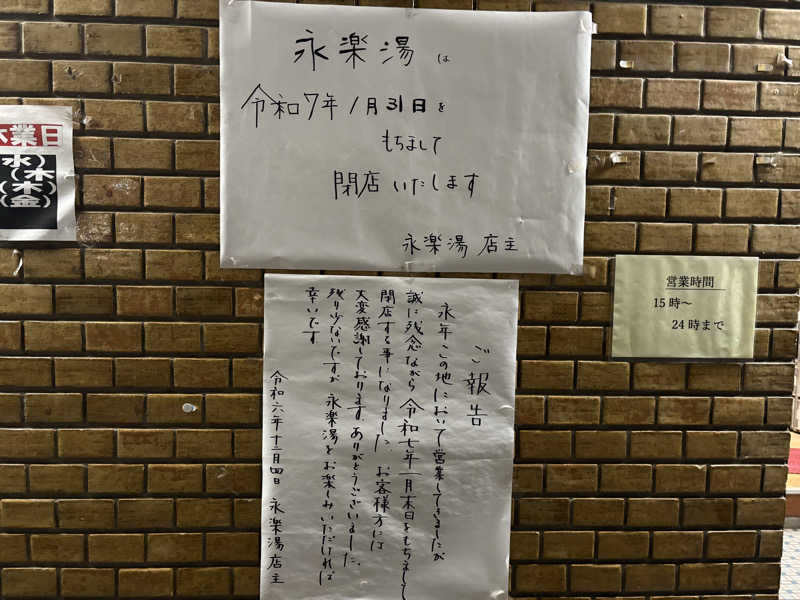 永楽湯は
令和7年1月31日を
もちまして
閉店いたします
永楽湯 店主
ご報告
永年この地において営業してきましたが
誠に残念ながら 令和七年一月末日をもちまして
閉店する事になりました。お客様方には
大変感謝しております。ありがとうございました。
残り少ないですが 永楽湯をお楽しみいただければ
幸いです
令和六年十二月四日 永楽湯店主
休業日
(水)
(木)
(木)
(金)
営業時間
15時～
24時まで